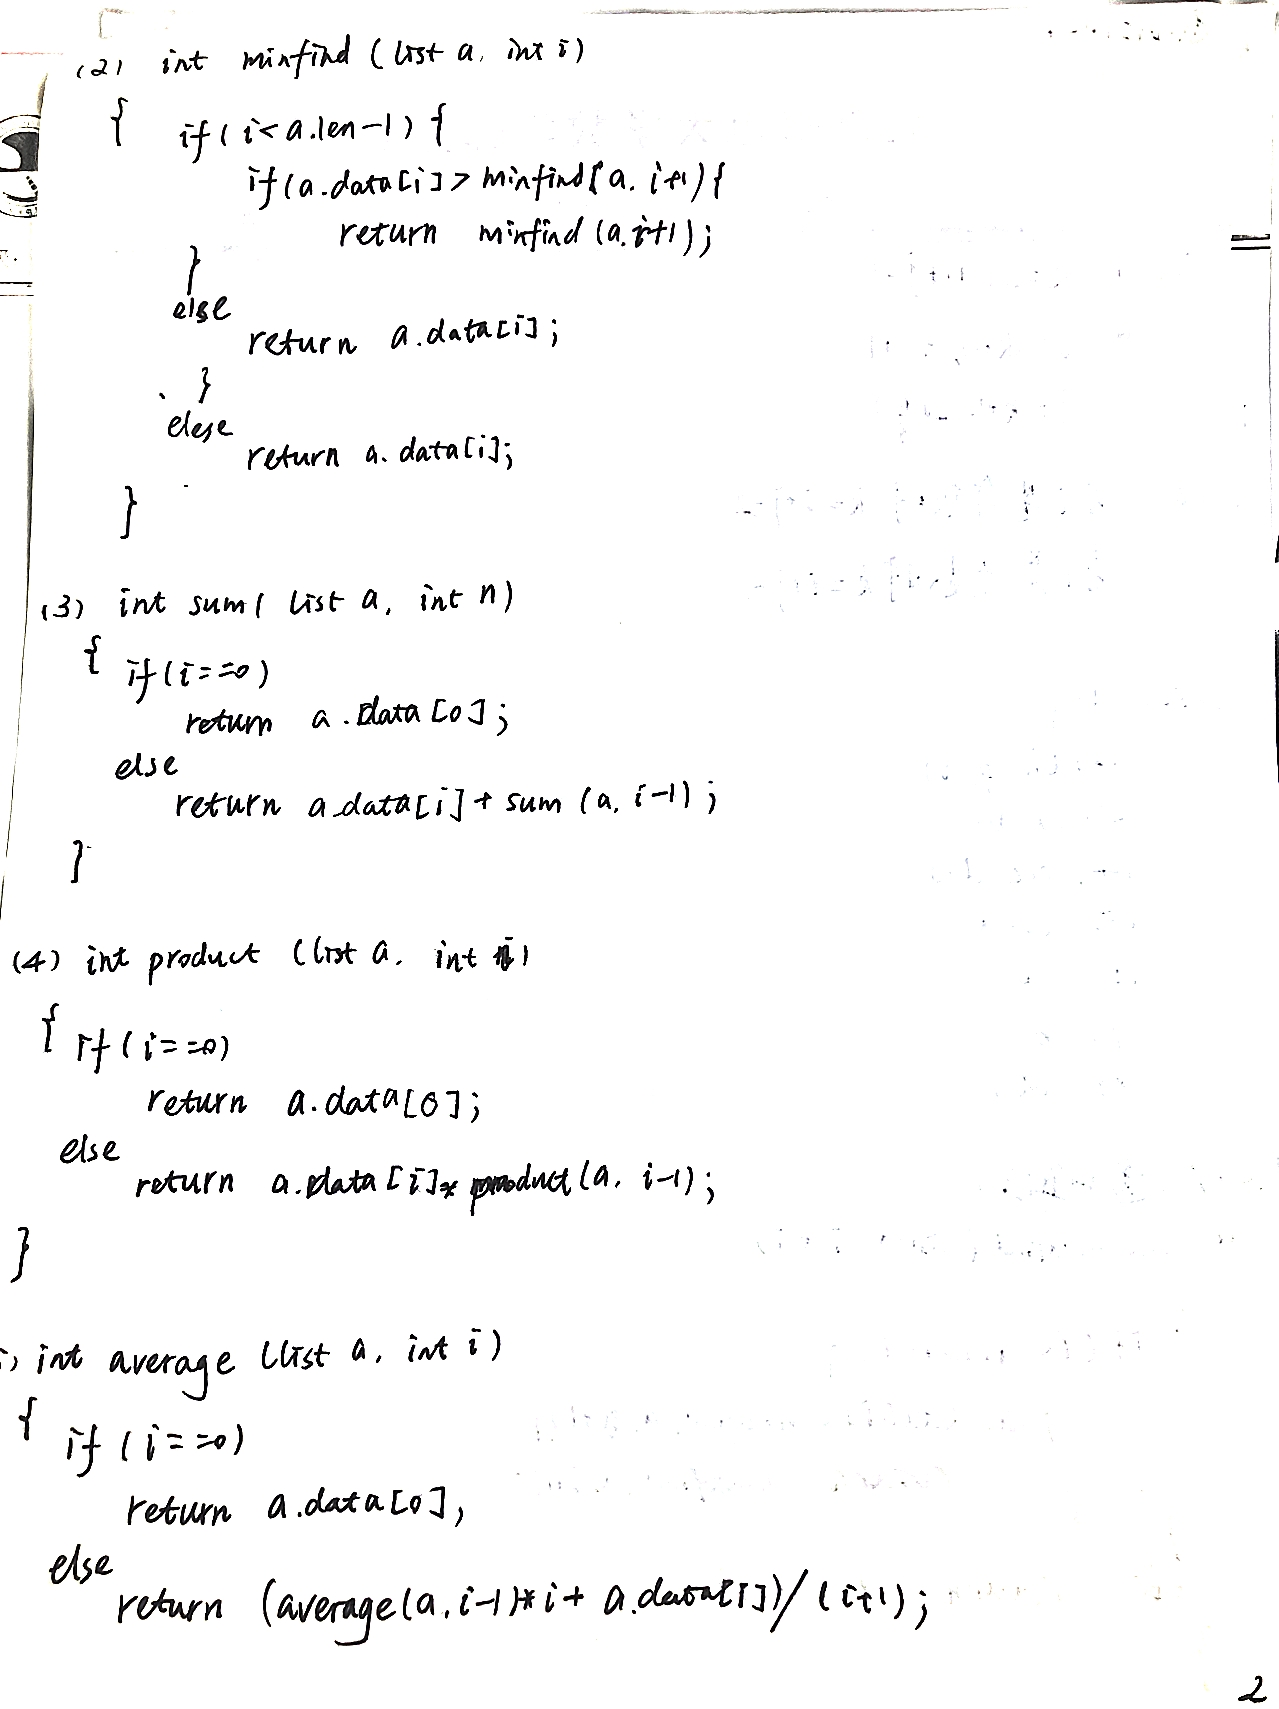 (2) int minfind (list a, int i)
{ if(i<a.len-1){
if(a.data[i]>minfind(a, i+1){
return minfind(a,i+1);
}
else
return a.data[i];
}
else
return a.data[i];
}
(3) int sum( list a, int n)
{ if(i==0)
return a.data[0];
else
return a.data[i]+sum(a, i-1);
}
(4) int product (list a, int i)
{ if(i==0)
return a.data[0];
else
return a.data[i]*product(a, i-1);
}
) int average (list a, int i)
{ if(i==0)
return a.data[0],
else
return (average(a,i-1)*i+a.data[i])/(i+1);
2